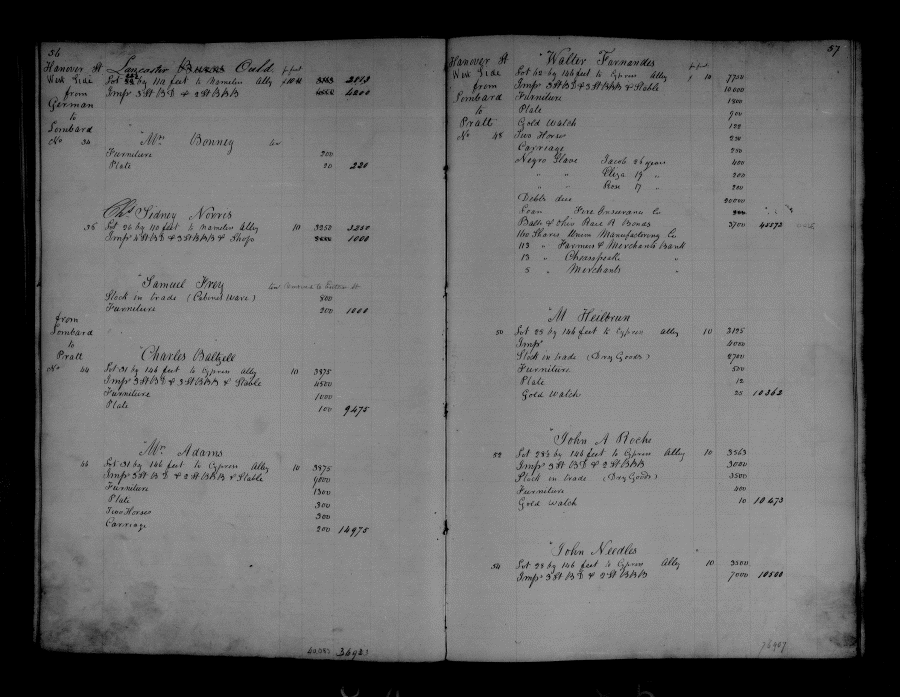 56
Hanover St Lancaster Ould
West Side Lot by 110 feet to Nameless Alley 2013
from Imps 3 St B D & 2 St B B B 4200
German
to
Lombard
No 34 "Mrs Bonney
Furniture 200
Plate 20 220
Chs Sidney Norris
36 Lot 26 by 110 feet to Nameless Alley 10 3250 3250
Imps 2 St B D & 3 St B B B & Shops 1000
"Samuel Frey
Stock in trade (Cabinet Ware) 800
Furniture 200 1000
from
Lombard
to
Pratt "Charles Baltzell
No 44 Lot 31 by 146 feet to Cypress Alley 10 3875
Imps 3 St B D & 2 St B B B & Stable 4500
Furniture 1000
Plate 100 9475
"Mrs Adams
46 Lot 31 by 146 feet to Cypress Alley 10 3875
Imps 3 St B D & 2 St B B B & Stable 9000
Furniture 1300
Plate 300
Two Horses 300
Carriage 200 14975
57
Hanover St "Walter Farnandes
West Side Lot 62 by 146 feet to Cypress Alley 10 7700
from Imps 3 St B D & 3 St B B B & Stable 10000
Lombard Furniture 1800
to Plate 900
Pratt Gold Watch 122
No 48 Two Horses 250
Carriage 250
Negro Slave Jacob 26 years 400
" " Eliza 19 " 200
" " Ron 17 " 200
Debts due 20000
Loan Fire Insurance Co
Balto & Ohio Rail R Bonds 3700 45572
160 Shares Union Manufacturing Co
113 " Farmers & Merchants Bank
13 " Chesapeake "
5 " Merchants "
"M Heilbrun
50 Lot 25 by 146 feet to Cypress Alley 10 3125
Imps 4000
Stock in trade (Dry Goods) 2700
Furniture 500
Plate 12
Gold Watch 25 10362
"John A Roche
52 Lot 28½ by 146 feet to Cypress Alley 10 3563
Imps 3 St B D & 2 St B B B 3000
Stock in trade (Dry Goods) 3500
Furniture 400
Gold Watch 10 10473
"John Needles
54 Lot 28 by 146 feet to Cypress Alley 10 3500
Imps 3 St B D & 2 St B B B 7000 10500
76907